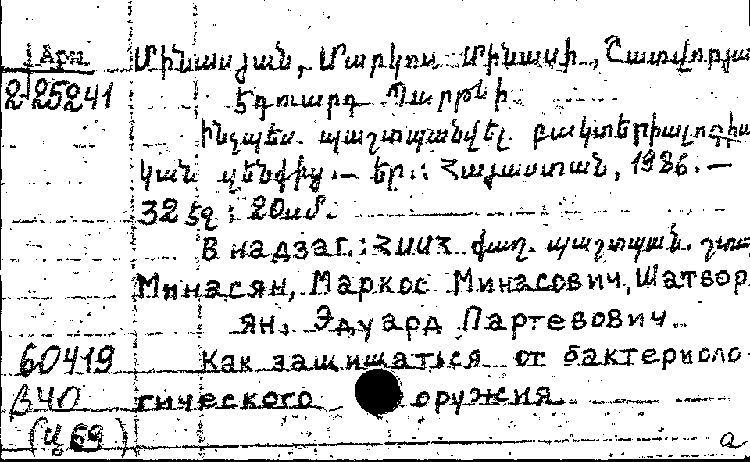 Арм. Մինասյան, Մարկոս Մինասի, Շատվորյա
2-25241 Էդուարդ Պարթևի
Ինչպես պաշտպանվել բակտերիալոգիա
կան զենքից.— Եր.: Հայաստան, 1986.—
32 էջ ; 20սմ.
В надзаг.: ՀՍՍՀ քաղ. պաշտպան. շտա
Минасян, Маркос Минасович, Шатвор
ян, Эдуард Партевович.
60419 Как защищаться от бактериоло
β40 гического оружия
(Ц69) a